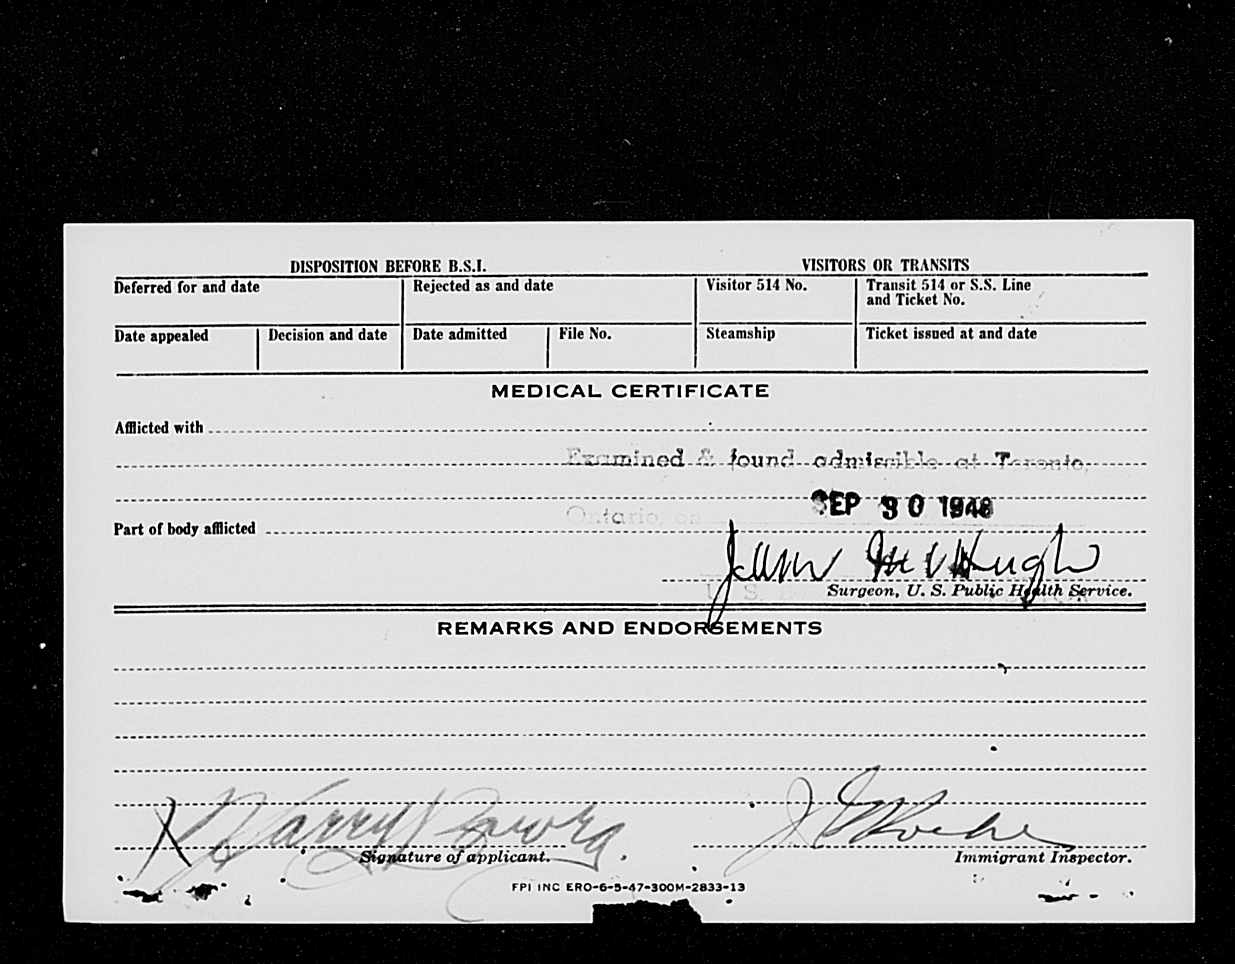 DISPOSITION BEFORE B.S.I. VISITORS OR TRANSITS
Deferred for and date Rejected as and date Visitor 514 No. Transit 514 or S.S. Line
and Ticket No.
Date appealed Decision and date Date admitted File No. Steamship Ticket issued at and date
MEDICAL CERTIFICATE
Afflicted with
Examined & found admissible at Toronto,
SEP 30 1948
Ontario, on
Part of body afflicted
McHugh
U. S.
Surgeon, U. S. Public Health Service.
REMARKS AND ENDORSEMENTS
X Harry
Signature of applicant. Immigrant Inspector.
FPI INC ERO-6-5-47-300M-2833-13